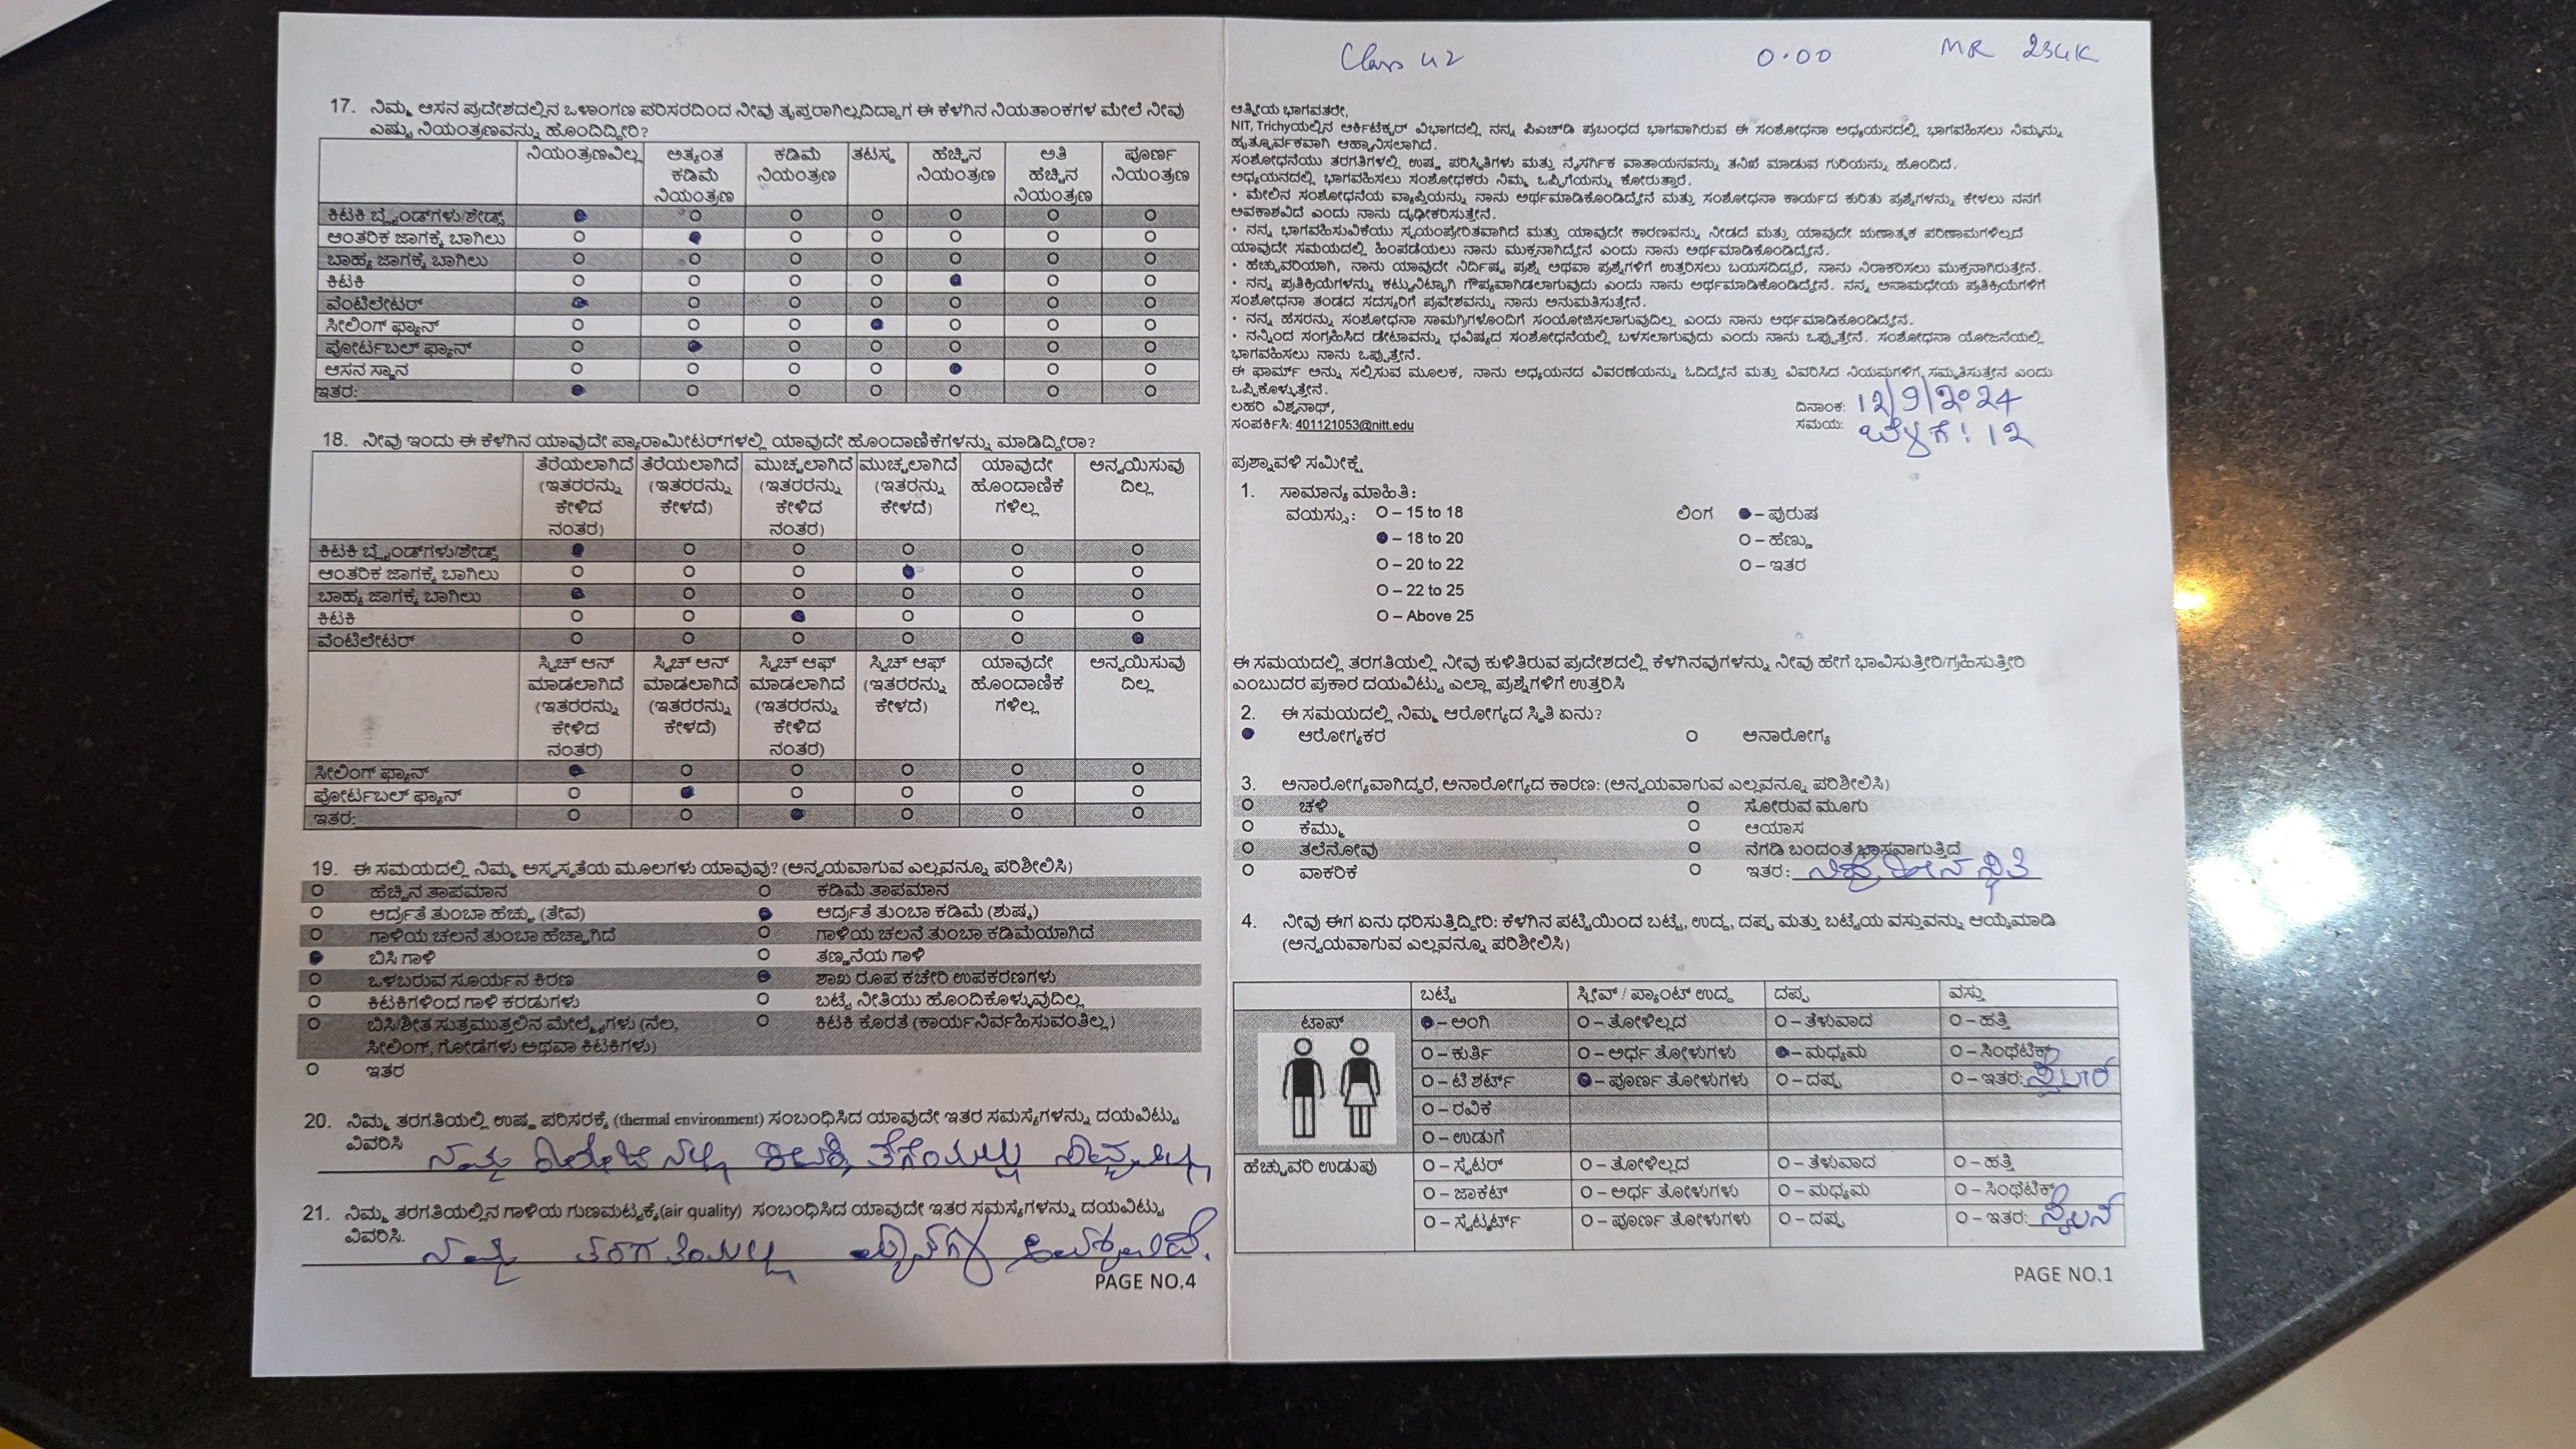 17. ನಿಮ್ಮ ಆಸನ ಪ್ರದೇಶದಲ್ಲಿನ ಒಳಾಂಗಣ ಪರಿಸರದಿಂದ ನೀವು ತೃಪ್ತರಾಗಿಲ್ಲದಿದ್ದಾಗ ಈ ಕೆಳಗಿನ ನಿಯತಾಂಕಗಳ ಮೇಲೆ ನೀವು
ಎಷ್ಟು ನಿಯಂತ್ರಣವನ್ನು ಹೊಂದಿದ್ದೀರಿ?
ನಿಯಂತ್ರಣವಿಲ್ಲ ಅತ್ಯಂತ ಕಡಿಮೆ ನಿಯಂತ್ರಣ ಕಡಿಮೆ ನಿಯಂತ್ರಣ ತಟಸ್ಥ ಹೆಚ್ಚಿನ ನಿಯಂತ್ರಣ ಅತಿ ಹೆಚ್ಚಿನ ನಿಯಂತ್ರಣ ಪೂರ್ಣ ನಿಯಂತ್ರಣ
ಕಿಟಕಿ ಬ್ಲೈಂಡ್‌ಗಳು/ಶೇಡ್ಸ್
ಆಂತರಿಕ ಜಾಗಕ್ಕೆ ಬಾಗಿಲು
ಬಾಹ್ಯ ಜಾಗಕ್ಕೆ ಬಾಗಿಲು
ಕಿಟಕಿ
ವೆಂಟಿಲೇಟರ್
ಸೀಲಿಂಗ್ ಫ್ಯಾನ್
ಪೋರ್ಟಬಲ್ ಫ್ಯಾನ್
ಆಸನ ಸ್ಥಾನ
ಇತರ:
18. ನೀವು ಇಂದು ಈ ಕೆಳಗಿನ ಯಾವುದೇ ಪ್ಯಾರಾಮೀಟರ್‌ಗಳಲ್ಲಿ ಯಾವುದೇ ಹೊಂದಾಣಿಕೆಗಳನ್ನು ಮಾಡಿದ್ದೀರಾ?
ತೆರೆಯಲಾಗಿದೆ (ಇತರರನ್ನು ಕೇಳಿದ ನಂತರ) ತೆರೆಯಲಾಗಿದೆ (ಇತರರನ್ನು ಕೇಳದೆ) ಮುಚ್ಚಲಾಗಿದೆ (ಇತರರನ್ನು ಕೇಳಿದ ನಂತರ) ಮುಚ್ಚಲಾಗಿದೆ (ಇತರರನ್ನು ಕೇಳದೆ) ಯಾವುದೇ ಹೊಂದಾಣಿಕೆ ಗಳಿಲ್ಲ ಅನ್ವಯಿಸುವು ದಿಲ್ಲ
ಕಿಟಕಿ ಬ್ಲೈಂಡ್‌ಗಳು/ಶೇಡ್ಸ್
ಆಂತರಿಕ ಜಾಗಕ್ಕೆ ಬಾಗಿಲು
ಬಾಹ್ಯ ಜಾಗಕ್ಕೆ ಬಾಗಿಲು
ಕಿಟಕಿ
ವೆಂಟಿಲೇಟರ್
ಸ್ವಿಚ್ ಆನ್ ಮಾಡಲಾಗಿದೆ (ಇತರರನ್ನು ಕೇಳಿದ ನಂತರ) ಸ್ವಿಚ್ ಆನ್ ಮಾಡಲಾಗಿದೆ (ಇತರರನ್ನು ಕೇಳದೆ) ಸ್ವಿಚ್ ಆಫ್ ಮಾಡಲಾಗಿದೆ (ಇತರರನ್ನು ಕೇಳಿದ ನಂತರ) ಸ್ವಿಚ್ ಆಫ್ (ಇತರರನ್ನು ಕೇಳದೆ) ಯಾವುದೇ ಹೊಂದಾಣಿಕೆ ಗಳಿಲ್ಲ ಅನ್ವಯಿಸುವು ದಿಲ್ಲ
ಸೀಲಿಂಗ್ ಫ್ಯಾನ್
ಪೋರ್ಟಬಲ್ ಫ್ಯಾನ್
ಇತರ:
19. ಈ ಸಮಯದಲ್ಲಿ ನಿಮ್ಮ ಅಸ್ವಸ್ಥತೆಯ ಮೂಲಗಳು ಯಾವುವು? (ಅನ್ವಯವಾಗುವ ಎಲ್ಲವನ್ನೂ ಪರಿಶೀಲಿಸಿ)
ಹೆಚ್ಚಿನ ತಾಪಮಾನ ಕಡಿಮೆ ತಾಪಮಾನ
ಆರ್ದ್ರತೆ ತುಂಬಾ ಹೆಚ್ಚು (ತೇವ) ಆರ್ದ್ರತೆ ತುಂಬಾ ಕಡಿಮೆ (ಶುಷ್ಕ)
ಗಾಳಿಯ ಚಲನೆ ತುಂಬಾ ಹೆಚ್ಚಾಗಿದೆ ಗಾಳಿಯ ಚಲನೆ ತುಂಬಾ ಕಡಿಮೆಯಾಗಿದೆ
ಬಿಸಿ ಗಾಳಿ ತಣ್ಣನೆಯ ಗಾಳಿ
ಒಳಬರುವ ಸೂರ್ಯನ ಕಿರಣ ಶಾಖ ರೂಪ ಕಚೇರಿ ಉಪಕರಣಗಳು
ಕಿಟಕಿಗಳಿಂದ ಗಾಳಿ ಕರಡುಗಳು ಬಟ್ಟೆ ನೀತಿಯು ಹೊಂದಿಕೊಳ್ಳುವುದಿಲ್ಲ
ಬಿಸಿ/ಶೀತ ಸುತ್ತಮುತ್ತಲಿನ ಮೇಲ್ಮೈಗಳು (ನೆಲ, ಕಿಟಕಿ ಕೊರತೆ (ಕಾರ್ಯನಿರ್ವಹಿಸುವಂತಿಲ್ಲ)
ಸೀಲಿಂಗ್, ಗೋಡೆಗಳು ಅಥವಾ ಕಿಟಕಿಗಳು)
ಇತರ
20. ನಿಮ್ಮ ತರಗತಿಯಲ್ಲಿ ಉಷ್ಣ ಪರಿಸರಕ್ಕೆ (thermal environment) ಸಂಬಂಧಿಸಿದ ಯಾವುದೇ ಇತರ ಸಮಸ್ಯೆಗಳನ್ನು ದಯವಿಟ್ಟು
ವಿವರಿಸಿ ನಮ್ಮ
21. ನಿಮ್ಮ ತರಗತಿಯಲ್ಲಿನ ಗಾಳಿಯ ಗುಣಮಟ್ಟಕ್ಕೆ(air quality) ಸಂಬಂಧಿಸಿದ ಯಾವುದೇ ಇತರ ಸಮಸ್ಯೆಗಳನ್ನು ದಯವಿಟ್ಟು
ವಿವರಿಸಿ. ನಮ್ಮ ತರಗತಿಯಲ್ಲಿ
PAGE NO.4
Class 42 0.00 MR 234K
ಆತ್ಮೀಯ ಭಾಗವತರೇ,
NIT, Trichyಯಲ್ಲಿನ ಆರ್ಕಿಟೆಕ್ಚರ್ ವಿಭಾಗದಲ್ಲಿ ನನ್ನ ಪಿಎಚ್‌ಡಿ ಪ್ರಬಂಧದ ಭಾಗವಾಗಿರುವ ಈ ಸಂಶೋಧನಾ ಅಧ್ಯಯನದಲ್ಲಿ ಭಾಗವಹಿಸಲು ನಿಮ್ಮನ್ನು
ಹೃತ್ಪೂರ್ವಕವಾಗಿ ಆಹ್ವಾನಿಸಲಾಗಿದೆ.
ಸಂಶೋಧನೆಯು ತರಗತಿಗಳಲ್ಲಿ ಉಷ್ಣ ಪರಿಸ್ಥಿತಿಗಳು ಮತ್ತು ನೈಸರ್ಗಿಕ ವಾತಾಯನವನ್ನು ತನಿಖೆ ಮಾಡುವ ಗುರಿಯನ್ನು ಹೊಂದಿದೆ.
ಅಧ್ಯಯನದಲ್ಲಿ ಭಾಗವಹಿಸಲು ಸಂಶೋಧಕರು ನಿಮ್ಮ ಒಪ್ಪಿಗೆಯನ್ನು ಕೋರುತ್ತಾರೆ.
• ಮೇಲಿನ ಸಂಶೋಧನೆಯ ವ್ಯಾಪ್ತಿಯನ್ನು ನಾನು ಅರ್ಥಮಾಡಿಕೊಂಡಿದ್ದೇನೆ ಮತ್ತು ಸಂಶೋಧನಾ ಕಾರ್ಯದ ಕುರಿತು ಪ್ರಶ್ನೆಗಳನ್ನು ಕೇಳಲು ನನಗೆ
ಅವಕಾಶವಿದೆ ಎಂದು ನಾನು ದೃಢೀಕರಿಸುತ್ತೇನೆ.
• ನನ್ನ ಭಾಗವಹಿಸುವಿಕೆಯು ಸ್ವಯಂಪ್ರೇರಿತವಾಗಿದೆ ಮತ್ತು ಯಾವುದೇ ಕಾರಣವನ್ನು ನೀಡದೆ ಮತ್ತು ಯಾವುದೇ ಋಣಾತ್ಮಕ ಪರಿಣಾಮಗಳಿಲ್ಲದೆ
ಯಾವುದೇ ಸಮಯದಲ್ಲಿ ಹಿಂಪಡೆಯಲು ನಾನು ಮುಕ್ತನಾಗಿದ್ದೇನೆ ಎಂದು ನಾನು ಅರ್ಥಮಾಡಿಕೊಂಡಿದ್ದೇನೆ.
• ಹೆಚ್ಚುವರಿಯಾಗಿ, ನಾನು ಯಾವುದೇ ನಿರ್ದಿಷ್ಟ ಪ್ರಶ್ನೆ ಅಥವಾ ಪ್ರಶ್ನೆಗಳಿಗೆ ಉತ್ತರಿಸಲು ಬಯಸದಿದ್ದರೆ, ನಾನು ನಿರಾಕರಿಸಲು ಮುಕ್ತನಾಗಿರುತ್ತೇನೆ.
• ನನ್ನ ಪ್ರತಿಕ್ರಿಯೆಗಳನ್ನು ಕಟ್ಟುನಿಟ್ಟಾಗಿ ಗೌಪ್ಯವಾಗಿಡಲಾಗುವುದು ಎಂದು ನಾನು ಅರ್ಥಮಾಡಿಕೊಂಡಿದ್ದೇನೆ. ನನ್ನ ಅನಾಮಧೇಯ ಪ್ರತಿಕ್ರಿಯೆಗಳಿಗೆ
ಸಂಶೋಧನಾ ತಂಡದ ಸದಸ್ಯರಿಗೆ ಪ್ರವೇಶವನ್ನು ನಾನು ಅನುಮತಿಸುತ್ತೇನೆ.
• ನನ್ನ ಹೆಸರನ್ನು ಸಂಶೋಧನಾ ಸಾಮಗ್ರಿಗಳೊಂದಿಗೆ ಸಂಯೋಜಿಸಲಾಗುವುದಿಲ್ಲ ಎಂದು ನಾನು ಅರ್ಥಮಾಡಿಕೊಂಡಿದ್ದೇನೆ.
• ನನ್ನಿಂದ ಸಂಗ್ರಹಿಸಿದ ಡೇಟಾವನ್ನು ಭವಿಷ್ಯದ ಸಂಶೋಧನೆಯಲ್ಲಿ ಬಳಸಲಾಗುವುದು ಎಂದು ನಾನು ಒಪ್ಪುತ್ತೇನೆ. ಸಂಶೋಧನಾ ಯೋಜನೆಯಲ್ಲಿ
ಭಾಗವಹಿಸಲು ನಾನು ಒಪ್ಪುತ್ತೇನೆ.
ಈ ಫಾರ್ಮ್ ಅನ್ನು ಸಲ್ಲಿಸುವ ಮೂಲಕ, ನಾನು ಅಧ್ಯಯನದ ವಿವರಣೆಯನ್ನು ಓದಿದ್ದೇನೆ ಮತ್ತು ವಿವರಿಸಿದ ನಿಯಮಗಳಿಗೆ ಸಮ್ಮತಿಸುತ್ತೇನೆ ಎಂದು
ಒಪ್ಪಿಕೊಳ್ಳುತ್ತೇನೆ.
ಲಹರಿ ವಿಶ್ವನಾಥ್, ದಿನಾಂಕ: 12/9/2024
ಸಂಪರ್ಕಿಸಿ: 401121053@nitt.edu ಸಮಯ: ಬೆಳಿಗೆ: 12
ಪ್ರಶ್ನಾವಳಿ ಸಮೀಕ್ಷೆ
1. ಸಾಮಾನ್ಯ ಮಾಹಿತಿ:
ವಯಸ್ಸು: O – 15 to 18 ಲಿಂಗ – ಪುರುಷ
– 18 to 20 O – ಹೆಣ್ಣು
O – 20 to 22 O – ಇತರ
O – 22 to 25
O – Above 25
ಈ ಸಮಯದಲ್ಲಿ ತರಗತಿಯಲ್ಲಿ ನೀವು ಕುಳಿತಿರುವ ಪ್ರದೇಶದಲ್ಲಿ ಕೆಳಗಿನವುಗಳನ್ನು ನೀವು ಹೇಗೆ ಭಾವಿಸುತ್ತೀರಿ/ಗ್ರಹಿಸುತ್ತೀರಿ
ಎಂಬುದರ ಪ್ರಕಾರ ದಯವಿಟ್ಟು ಎಲ್ಲಾ ಪ್ರಶ್ನೆಗಳಿಗೆ ಉತ್ತರಿಸಿ
2. ಈ ಸಮಯದಲ್ಲಿ ನಿಮ್ಮ ಆರೋಗ್ಯದ ಸ್ಥಿತಿ ಏನು?
ಆರೋಗ್ಯಕರ ಅನಾರೋಗ್ಯ
3. ಅನಾರೋಗ್ಯವಾಗಿದ್ದರೆ, ಅನಾರೋಗ್ಯದ ಕಾರಣ: (ಅನ್ವಯವಾಗುವ ಎಲ್ಲವನ್ನೂ ಪರಿಶೀಲಿಸಿ)
ಚಳಿ ಸೋರುವ ಮೂಗು
ಕೆಮ್ಮು ಆಯಾಸ
ತಲೆನೋವು ನೆಗಡಿ ಬಂದಂತೆ ಭಾಸವಾಗುತ್ತಿದೆ
ವಾಕರಿಕೆ ಇತರ:
4. ನೀವು ಈಗ ಏನು ಧರಿಸುತ್ತಿದ್ದೀರಿ: ಕೆಳಗಿನ ಪಟ್ಟಿಯಿಂದ ಬಟ್ಟೆ, ಉದ್ದ, ದಪ್ಪ ಮತ್ತು ಬಟ್ಟೆಯ ವಸ್ತುವನ್ನು ಆಯ್ಕೆಮಾಡಿ
(ಅನ್ವಯವಾಗುವ ಎಲ್ಲವನ್ನೂ ಪರಿಶೀಲಿಸಿ)
ಬಟ್ಟೆ ಸ್ಲೀವ್ / ಪ್ಯಾಂಟ್ ಉದ್ದ ದಪ್ಪ ವಸ್ತು
ಟಾಪ್ – ಅಂಗಿ O – ತೋಳಿಲ್ಲದ O – ತೆಳುವಾದ O – ಹತ್ತಿ
O – ಕುರ್ತಿ O – ಅರ್ಧ ತೋಳುಗಳು – ಮಧ್ಯಮ O – ಸಿಂಥೆಟಿಕ್
O – ಟಿ ಶರ್ಟ್ – ಪೂರ್ಣ ತೋಳುಗಳು O – ದಪ್ಪ O – ಇತರ:
O – ರವಿಕೆ
O – ಉಡುಗೆ
ಹೆಚ್ಚುವರಿ ಉಡುಪು O – ಸ್ವೆಟರ್ O – ತೋಳಿಲ್ಲದ O – ತೆಳುವಾದ O – ಹತ್ತಿ
O – ಜಾಕೆಟ್ O – ಅರ್ಧ ತೋಳುಗಳು O – ಮಧ್ಯಮ O – ಸಿಂಥೆಟಿಕ್
O – ಸ್ವೆಟ್ಶರ್ಟ್ O – ಪೂರ್ಣ ತೋಳುಗಳು O – ದಪ್ಪ O – ಇತರ:
PAGE NO.1